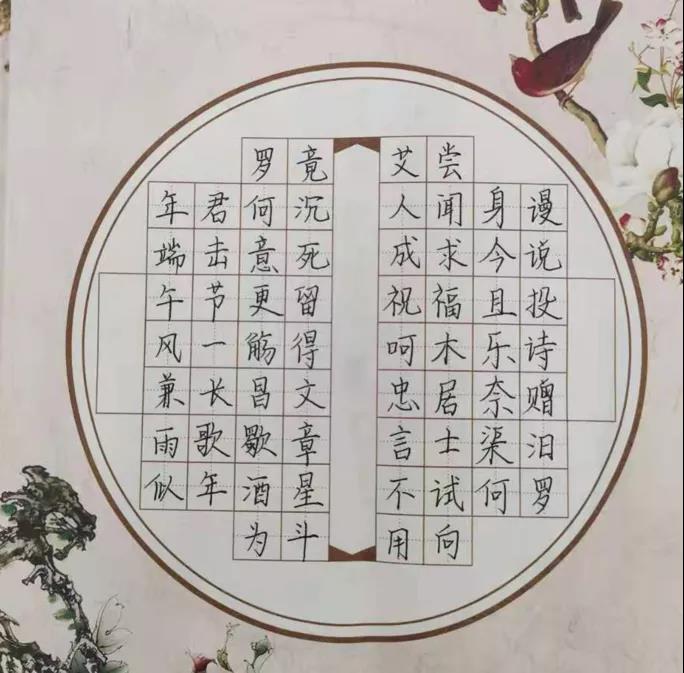 谩说投诗赠汨罗
身今且乐奈渠何
尝闻求福木居士试向
艾人成祝呵忠言不用
竟沉死留得文章星斗
罗何意更觞昌歜酒为
君击节一长歌年
年端午风兼雨似